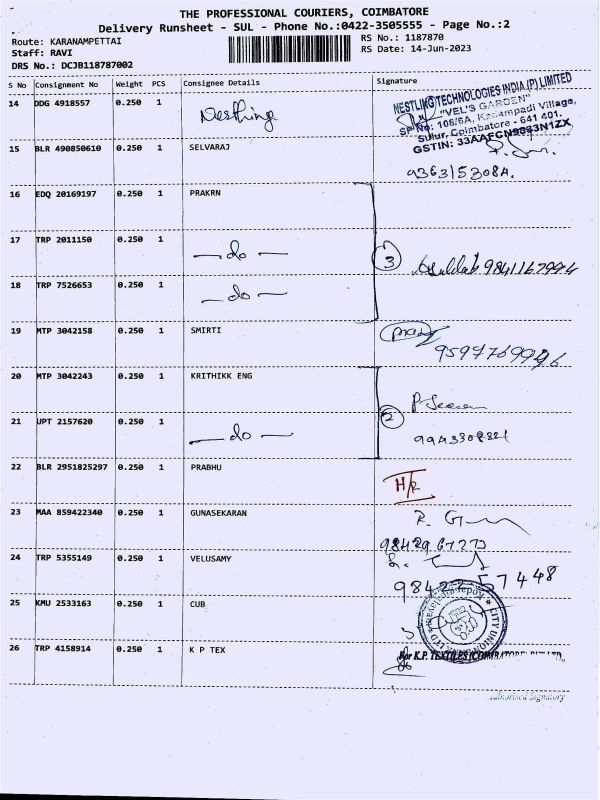 THE PROFESSIONAL COURIERS, COIMBATORE
Delivery Runsheet - SUL - Phone No.:0422-3505555 - Page No.:2
Route: KARANAMPETTAI RS No.: 1187870
Staff: RAVI RS Date: 14-Jun-2023
DRS No.: DCJB118787002
S No Consignment No Weight PCS Consignee Details Signature
14 DDG 4918557 0.250 1 Nesthing
NESTLING TECHNOLOGIES INDIA (P) LIMITED
"VEL'S GARDEN"
SF No: 108/6A, Kadampadi Village,
Sulur, Coimbatore - 641 401.
GSTIN: 33AAFCN9883N1ZX
15 BLR 490850610 0.250 1 SELVARAJ
16 EDQ 20169197 0.250 1 PRAKRN
17 TRP 2011150 0.250 1 — do — 3
18 TRP 7526653 0.250 1 — do —
19 MTP 3042158 0.250 1 SMIRTI
20 MTP 3042243 0.250 1 KRITHIKK ENG
21 UPT 2157620 0.250 1 — do — 2
22 BLR 2951825297 0.250 1 PRABHU H/R
23 MAA 859422340 0.250 1 GUNASEKARAN
24 TRP 5355149 0.250 1 VELUSAMY
25 KMU 2533163 0.250 1 CUB
CITY UNION
26 TRP 4158914 0.250 1 K P TEX
For K.P. TEXTILES (COIMBATORE) PVT LTD.,
Authorised Signatory